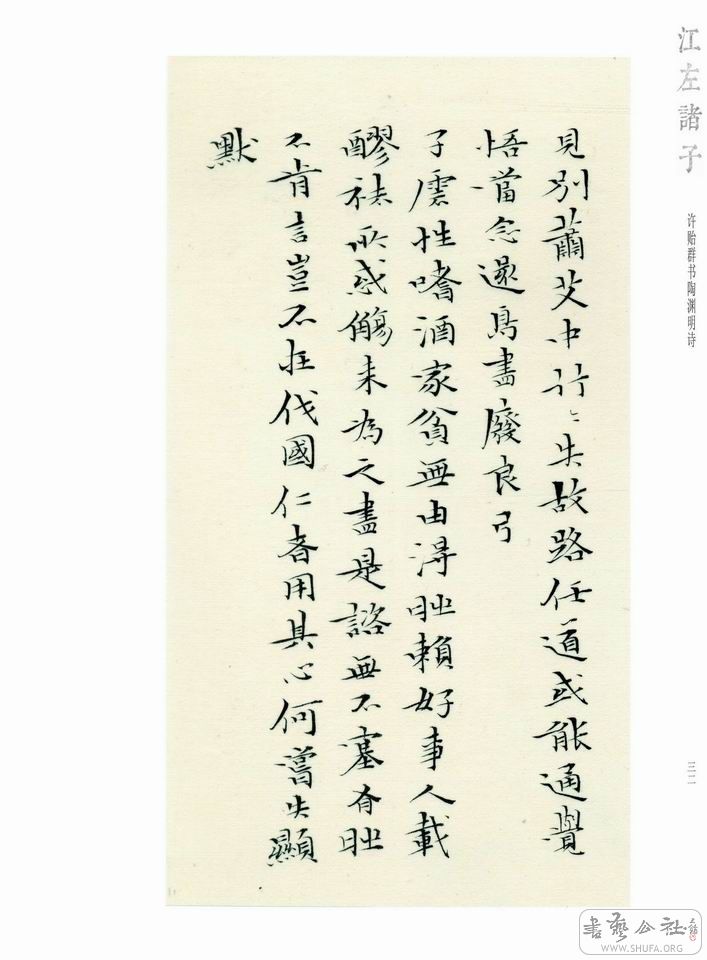 江左諸子
许贻群书陶渊明诗
三二
見別蕭艾中行々失故路任道或能通覺
悟當念還鳥盡廢良弓
子雲性嗜酒家貧無由得時賴好事人載
醪祛所惑觴来為之盡是諮無不塞有時
不肯言豈不在伐國仁者用其心何嘗失顯
默
書藝公社
WWW.SHUFA.ORG